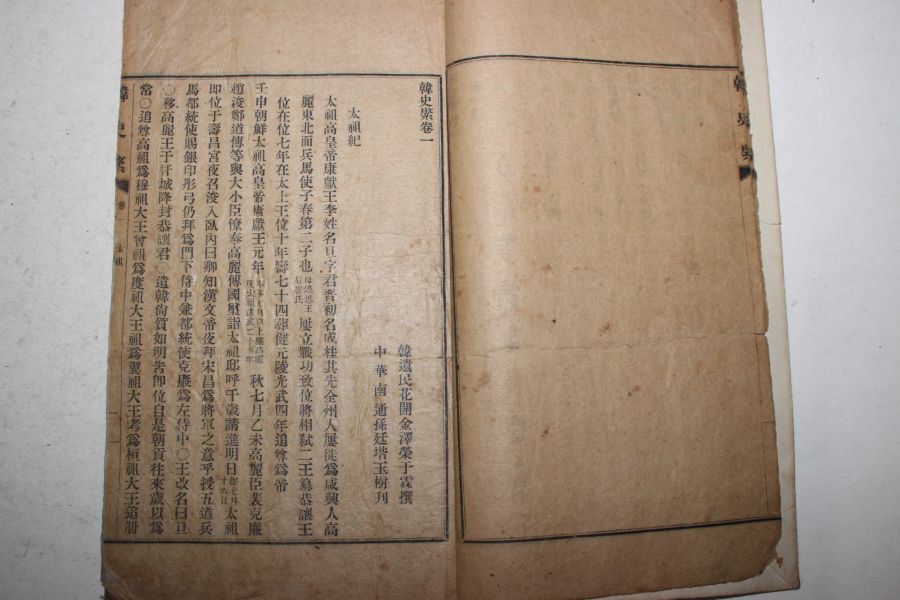 韓史綮卷一
韓遺民花開金澤榮于霖撰
中華南通孫廷堦玉樹刊
太祖紀
太祖高皇帝康獻王李姓名旦字君晋初名成桂其先全州人屢徙爲咸興人高
麗東北面兵馬使子春第二子也母懿惠王后崔氏屢立戰功致位將相弑二王篡恭讓王
位在位七年在太上王位十年壽七十四葬健元陵光武四年追尊爲帝
壬申朝鮮太祖高皇帝康獻王元年秋七月乙未高麗臣裴克廉
趙浚鄭道傳等與大小臣僚奉高麗傳國璽詣太祖邸呼千歲請進明日卽七月十六日太祖
卽位于壽昌宮夜召浚入臥內曰卿知漢文帝夜拜宋昌爲將軍之意乎授五道兵
馬都統使賜銀印彤弓仍拜爲門下侍中兼都統使克廉爲左侍中〇王改名曰旦
〇移高麗王于杆城降封恭讓君〇遣韓尙質如明告卽位自是朝貢往來歲以爲
常〇追尊高祖爲穆祖大王曾祖爲度祖大王祖爲翼祖大王考爲桓祖大王追册
韓史綮
卷一
太祖
韓史綮